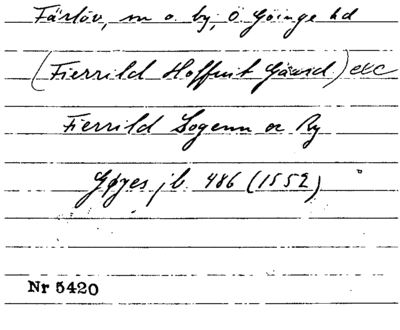 Färlöv, sn o. by, Ö. Göinge hd
(Fierrild Hoffuit Gaard) etc
Fierrild Sogenn oc By
Gøyes jb. 486 (1552)
Nr 5420